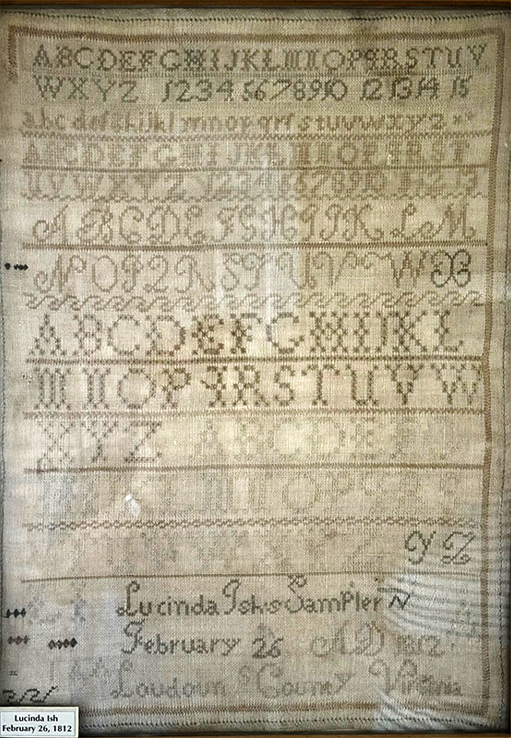 ABCDEFGHIJKLMNOPQRSTUV
WXYZ 1234 5678910 12 13 14 15
abc defghijkl mnopqrſstuvwxyz
ABCDEFGHIJKLMNOPQRST
UVWXYZ 12345678910 11 12 13
ABCDEFGHIJKLM
NOPQRSTUVWX
ABCDEFGHIJKL
MNOPQRSTUVW
XYZ ABCDEF
LMNOP
YZ
Lucinda Ish's Sampler
February 26 AD 1812
Loudoun County Virginia
Lucinda Ish
February 26, 1812